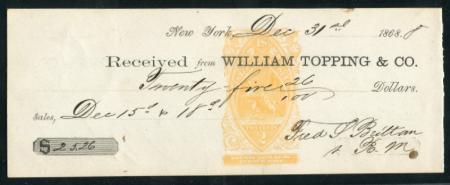 New York Dec 31st 1868. 8
Received from WILLIAM TOPPING & CO.
Twenty five 26/100 Dollars.
Sales, Dec 15th & 18th
Fred S Britton
$25.26